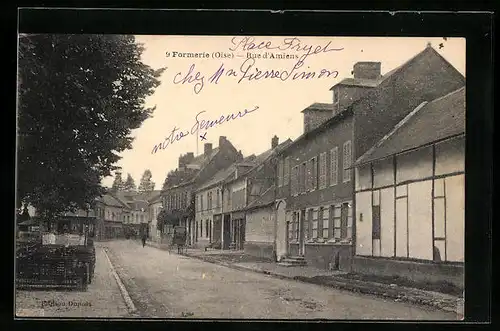 Place Fryet
9 Formerie (Oise) — Rue d'Amiens
chez Mr Pierre Simon
notre demeure
x
Edition Dupuis